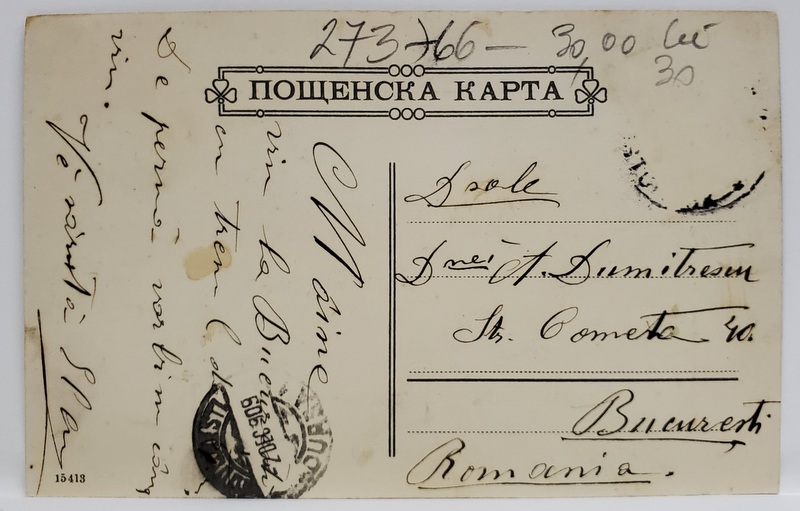 273-766 — 30,00 lei
30
ПОЩЕНСКА КАРТА
Mâine
vin la Bucur
cu trenul d
De permă vorbim când
vin.
Vă sărută
Dsale
Dnei A. Dumitrescu
Str. Cometa 40.
Bucureşti
Romania.
15413